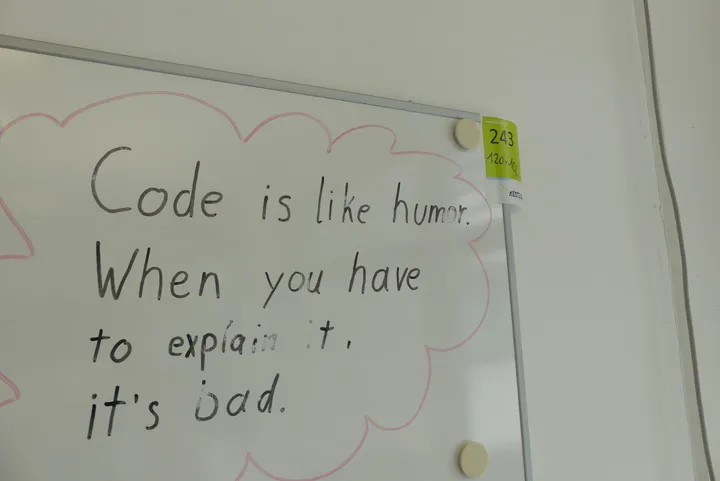 Code is like humor.
When you have
to explain it,
it's bad.
243